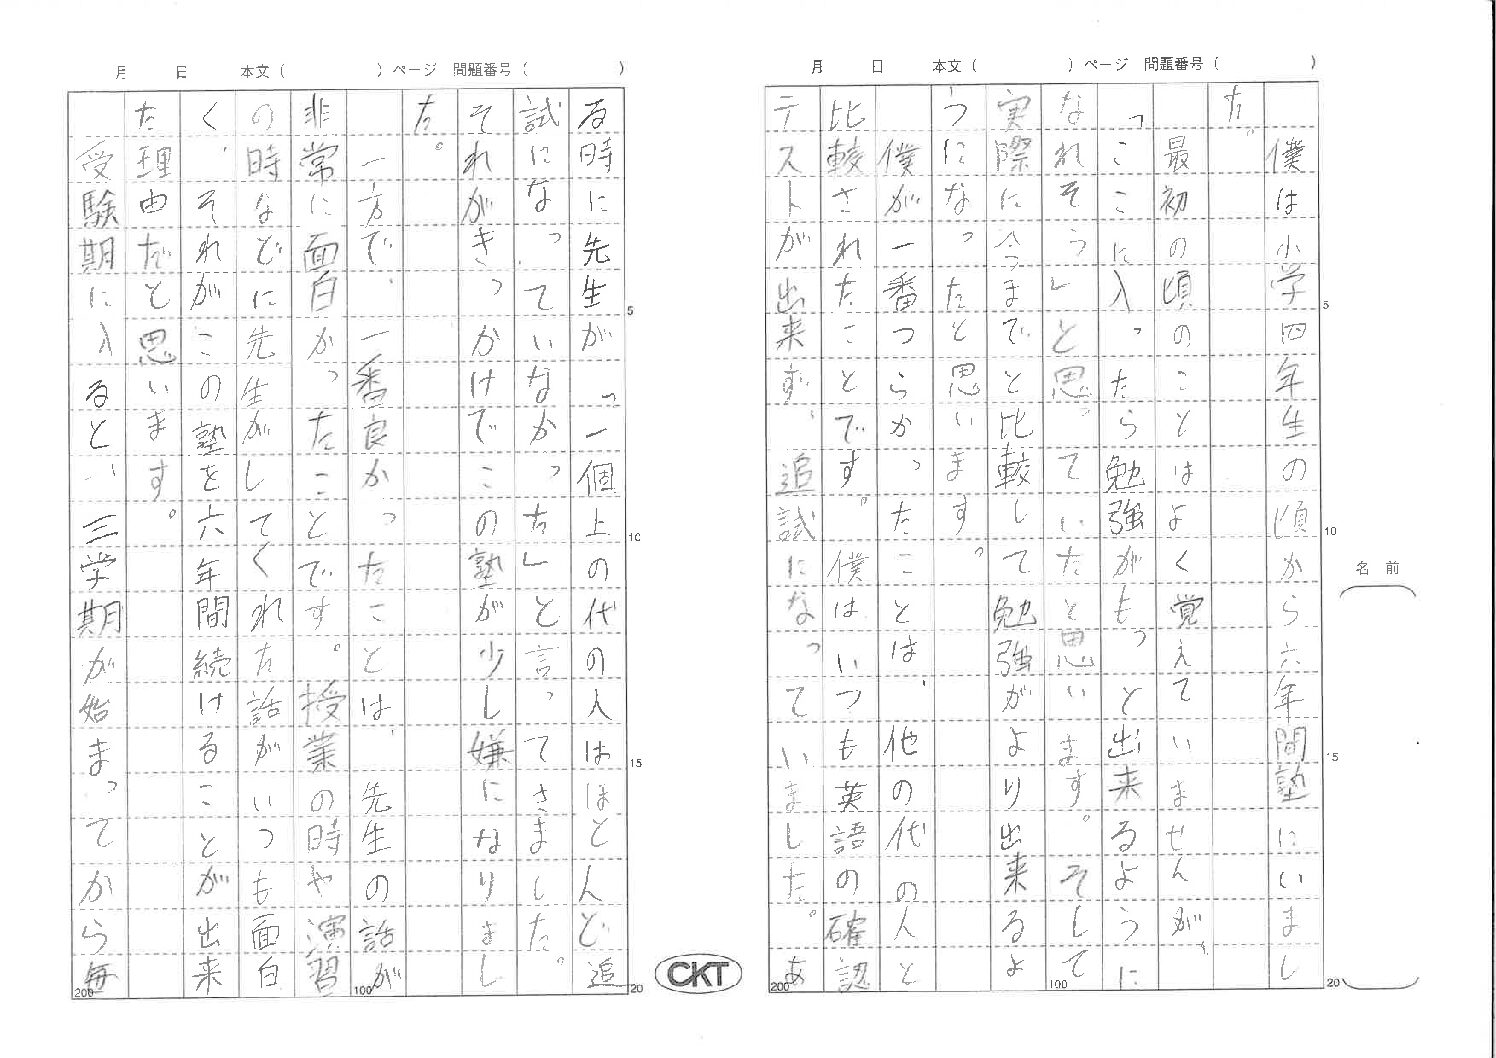 月　日　本文（　　）ページ　問題番号（　　）
僕は小学四年生の頃から六年間塾にいまし
た。
最初の頃のことはよく覚えていませんが、
「ここに入ったら勉強がもっと出来るように
なれそう」と思っていたと思います。そして
実際に今までと比較して勉強がより出来るよ
うになったと思います。
僕が一番つらかったことは、他の代の人と
比較されたことです。僕はいつも英語の確認
テストが出来ず、追試になっていました。あ
名前
5
10
15
20
100
200
月　日　本文（　　）ページ　問題番号（　　）
る時に先生が「一個上の代の人はほとんど追
試になっていなかった」と言ってさました。
それがきっかけでこの塾が少し嫌になりまし
た。
一方で、一番良かったことは、先生の話が
非常に面白かったことです。授業の時や演習
の時などに先生がしてくれた話がいつも面白
く、それがこの塾を六年間続けることが出来
た理由だと思います。
受験期に入ると、三学期が始まってから毎
5
10
15
20
100
200
CKT